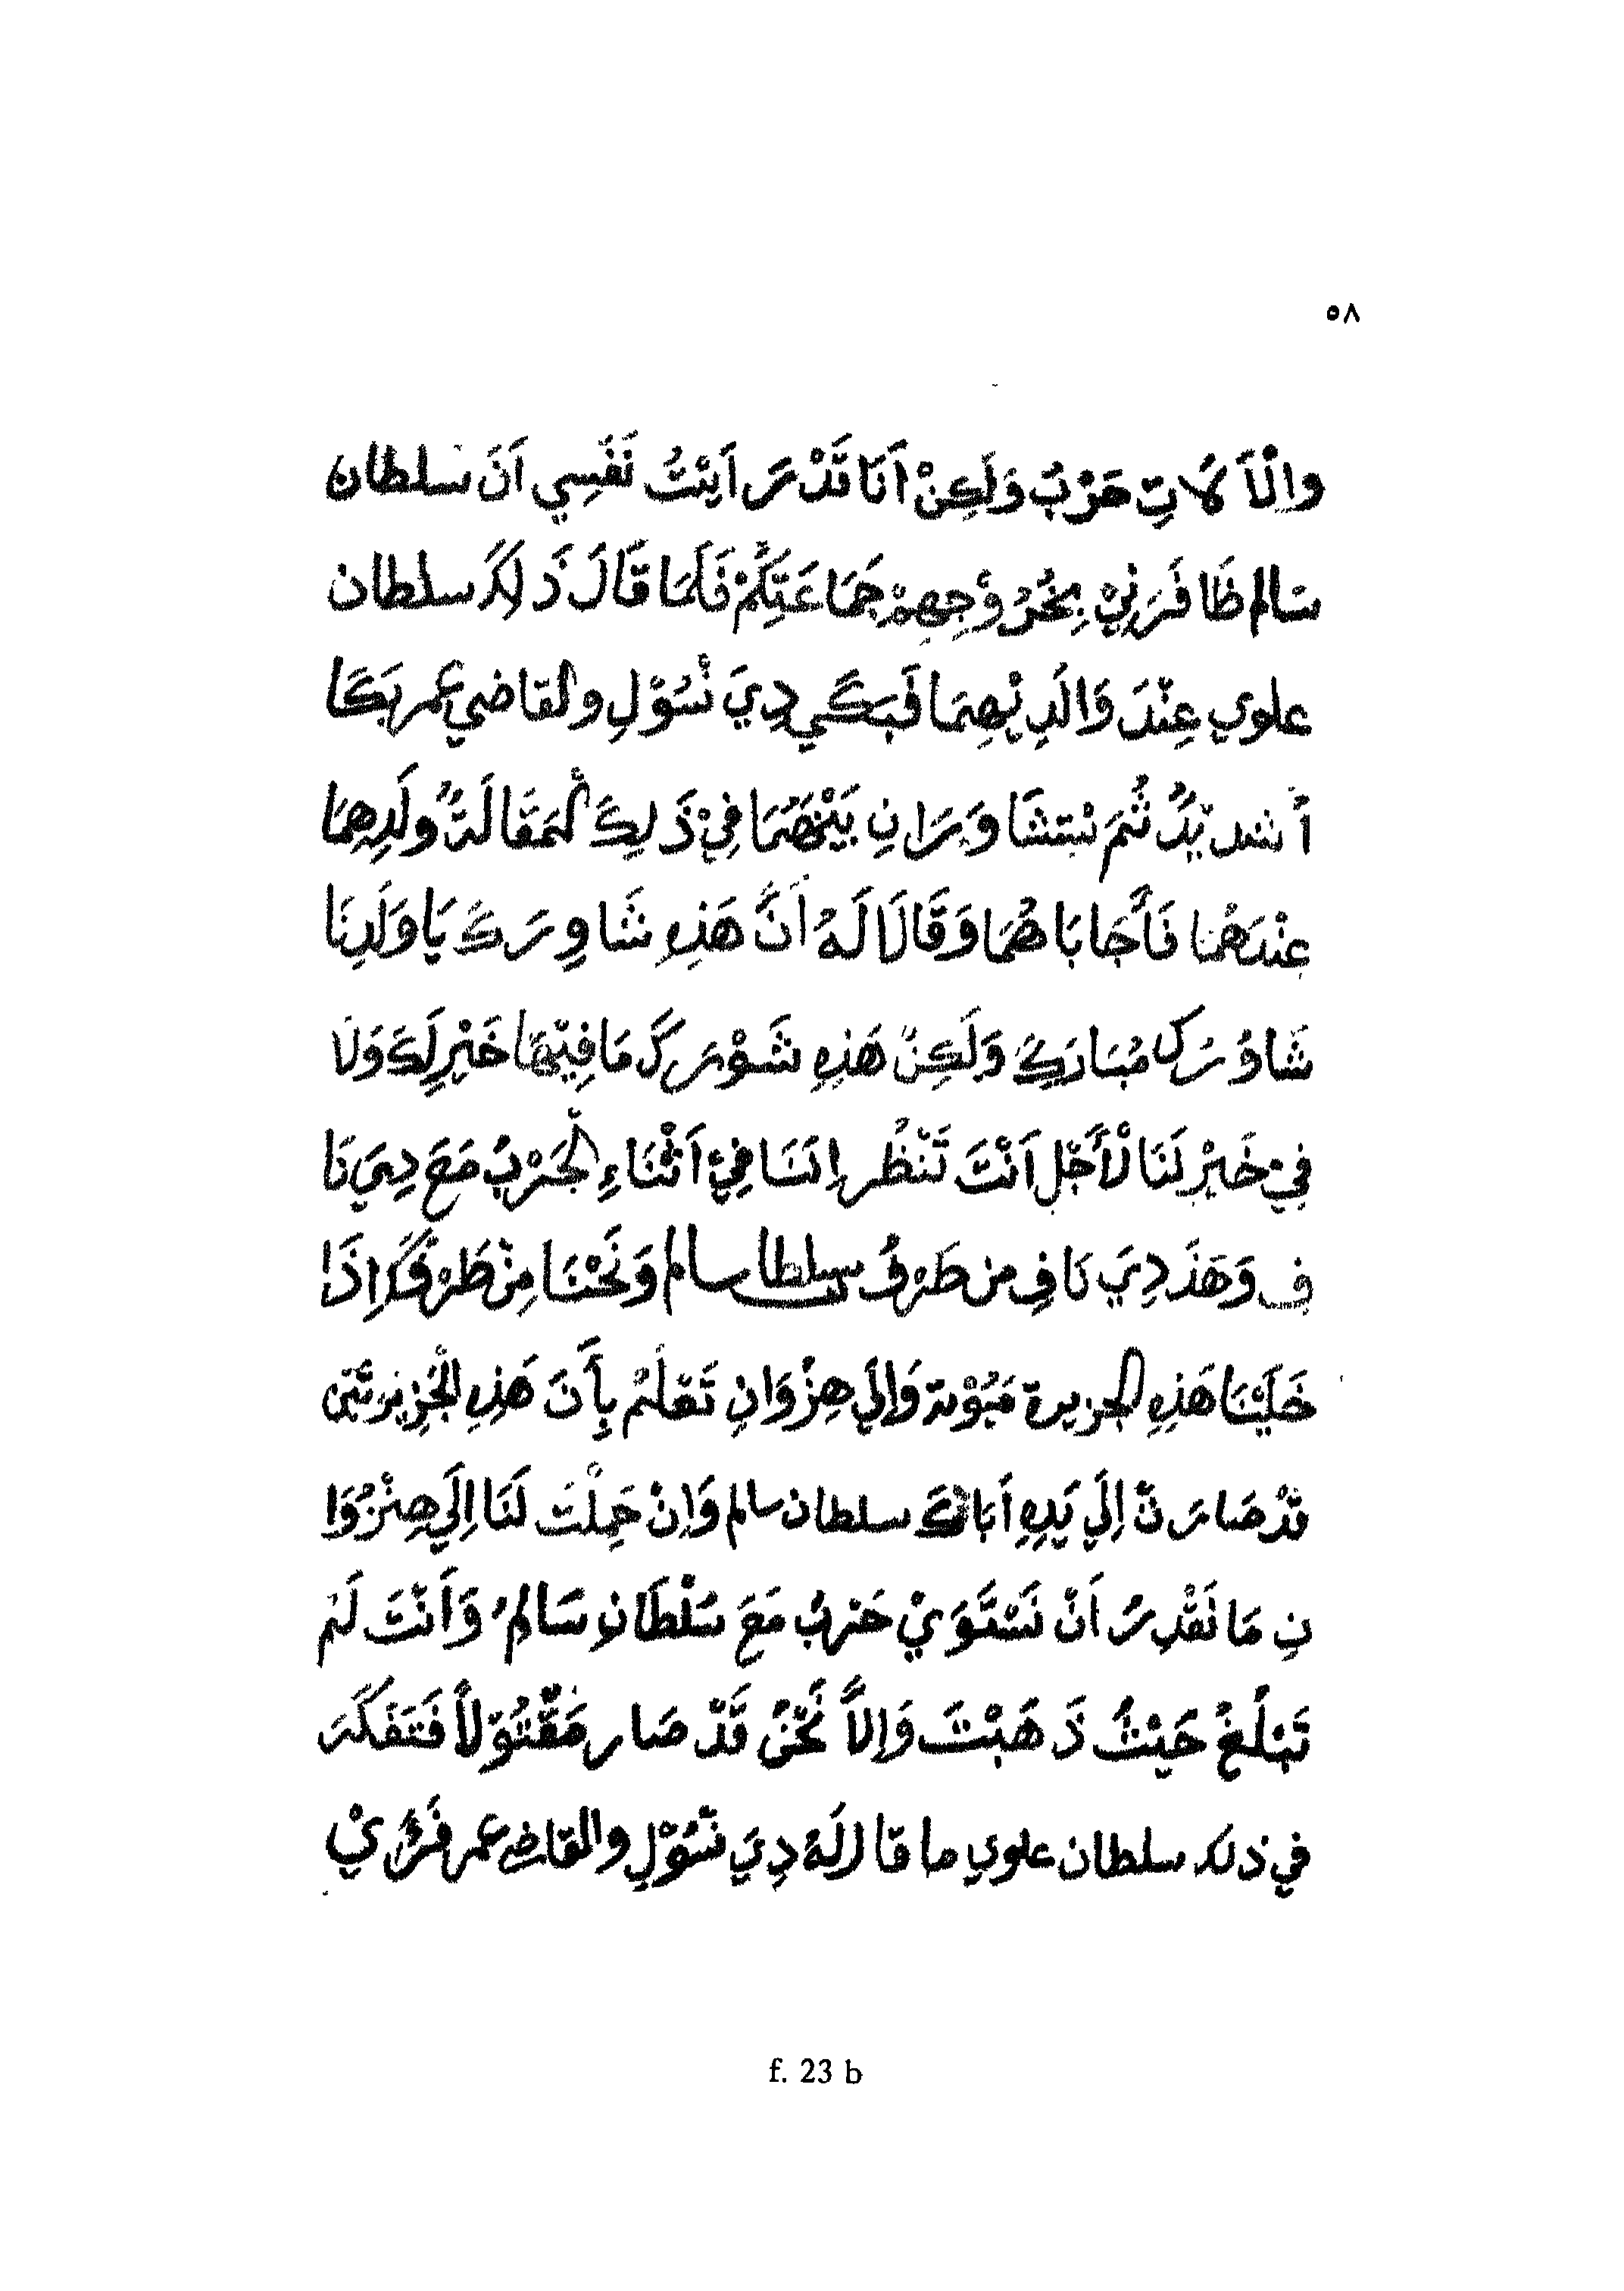 ٥٨
وإلَّا لَاتِ حَرْبُ وَلَكِنْ اَنَا قَدْ رَ اَيْتُ نَفْسِي اَنَ سلطان
سالم ظَا فَرَنِيْ بِخُرُوْجِهِمْ جَمَاعَتِكُمْ فَلَمَا قَالَ ذَ لِكَ سلطان
علوي عِنْدَ وَالَدِيْهِمَا فَبَكَي دِيَ نْسُوْلِ والقاضي عمر بَكَا
أً شديْدُ ثُمَ نْبتشَا وَرَانِ بَيْنَهُمَا فِيْ ذَ لِكَ الْمَقَالَةُ ولَدِهِمَا
عِنْدَهُمَا فَأَجَابَا هُمَا وَقَالَا لَهُ اَنَّ هَذِهِ شَاوِرَكَ يَا وَلَدِنَا
شَاوُرَكَ مُبَارَكِ وَلَكِنْ هَذِهِ شَوْرَكَ مَا فِيْهَا خَيْرِ لَكَ وَلَا
فِيْ خَيْرِ لَنَا لْأَجْلِ اَنْتَ تَنْظُر اِنَنَا فِيْ اَثْنَاءِ الْحَرْبُ مَعَ دِيَ نَا
فِ وَهَذَ دِيَ نَافِ من طَرْفُ سلطان سالم وَنَحْنَا مِنْ طَرْفَكَ اِذَا
خَلَيْنَا هَذِهِ الجزيرة مَيُوْتة وَإِلَي هِنْزُوَانِ تَعْلَمْ بِأَنَ هَذِهِ الْجَزِيْرتَيْن
قَدْ صَارَتْ اِلَي يَدِهِ اَبَانَكَ سلطان سالم وَاِنْ حَمِلْتَ لَنَا اِلَي هِنْزُوَا
نِ مَا نَقْدِرُ اَنْ نَسْتَوَيْ حَرْبُ مَعَ سُلْطَانِ سَالِمُ وَاَنْتَ لَمْ
تَبْلُغْ حَيْثُ ذَ هَبْتَ وَإِلاَّ نَحْنُ قَدْ صَار مَقْتُوْلاً فَتَفَكَرَ
في ذلك سلطان علوي ما قا لَهُ دِيَ نْسُوْلِ والقاضي عمر فَرَيْ
f. 23 b